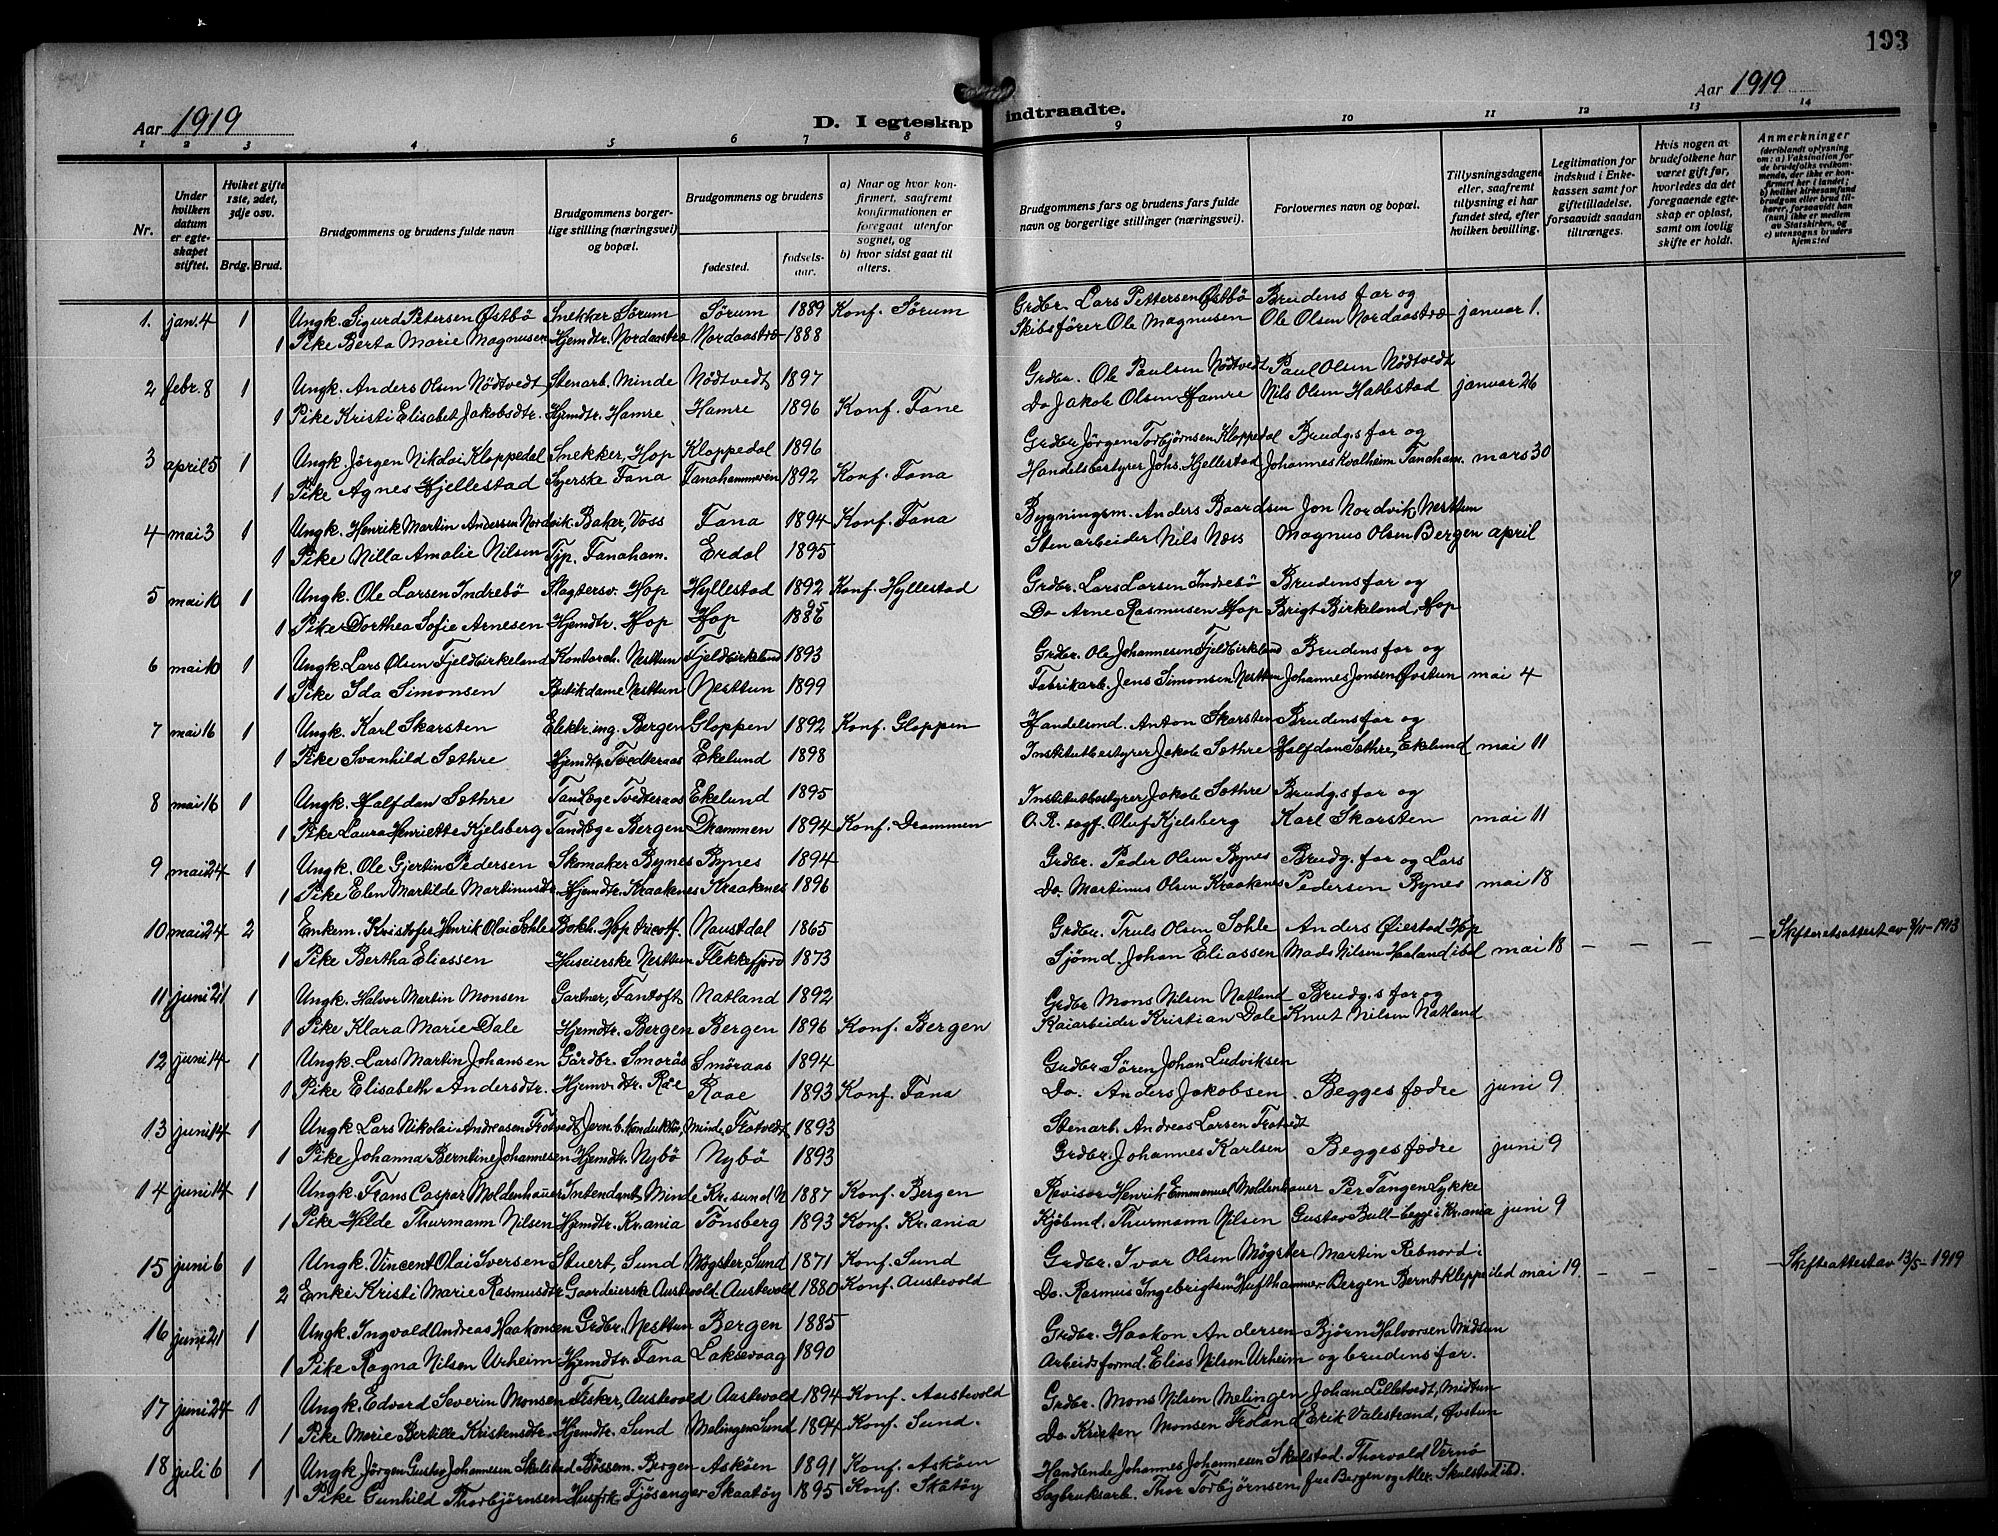 193
Aar 1919
D. I egteskap indtraadte.
Aar 1919
1 2 3 4 5 6 7 8 9 10 11 12 13 14
Nr.
Under hvilken datum er egteskapet stiftet.
Hviket gifte 1ste, 2det, 3dje osv.
Brdg. Brud.
Brudgommens og brudens fulde navn
Brudgommens borgerlige stilling (næringsvei) og bopæl.
Brudgommens og brudens
fødested.
fødselsaar.
a) Naar og hvor konfirmert, saafremt konfirmationen er foregaat utenfor sognet, og
b) hvor sidst gaat til alters.
Brudgommens fars og brudens fars fulde navn og borgerlige stillinger (næringsvei).
Forlovernes navn og bopæl.
Tillysningsdagene eller, saafremt tillysning ei har fundet sted, efter hvilken bevilling.
Legitimation for indskud i Enkekassen samt for giftetilladelse, forsaavidt saadan tiltrænges.
Hvis nogen av brudefolkene har været gift før, hvorledes da det foregaaende egteskap er opløst, samt om lovlig skifte er holdt.
Anmerkninger (deriblandt oplysning om: a) Vaksination for de brudefolks vedkommende, der ikke er konfirmert her i landet; b) hvilket kirkesamfund brudgom eller brud tilhører, forsaavidt han (hun) ikke er medlem av Statskirken, og c) utensogns bruders hjemsted
1. jan. 4 1 Ungk. Sigurd Petersen Østbø Snekker Sørum Sørum 1889 Konf. Sørum Grdbr. Lars Pettersen Østbø Brudens far og januar 1.
1 Pike Berta Marie Magnusen Hjemdtr. Nordaastræ Nordaastræ 1888 Skibsfører Ole Magnusen Ole Olsen Nordaastræ
2 febr. 8 1 Ungk. Anders Olsen Nödtvedt Stenarb. Minde Nödtvedt 1897 Grdbr. Ole Paulsen Nödtvedt Paul Olsen Nödtvedt
1 Pike Kristi Elisabet Jakobsdtr. Hjemdtr. Hamre Hamre 1896 Konf. Fane Do Jakob Olsen Hamre Nils Olsen Hatlestad januar 26
3 april 5 1 Ungk. Jörgen Nikolai Kloppedal Snekker, Hop Kloppedal 1896 Grdbr. Jörgen Torbjørnsen Kloppedal Brudg.s far og
1 Pike Agnes Hjellestad Syerske Fana Fanahammeren 1892 Konf. Fana Handelsbestyrer Johs. Hjellestad Johannes Kvalheim Fanaham. mars 30
4 mai 3 1 Ungk. Henrik Martin Andersen Nordvik Baker, Voss Fana 1894 Konf. Fana Bygningsm. Anders Baardsen Jon Nordvik, Nesttun
1 Pike Nilla Amalie Nilsen Tjp. Fanaham. Erdal 1895 Stenarbeider Nils Næss Magnus Olsen Bergen april
5 mai 10 1 Ungk. Ole Larsen Indrebø Slagtersv. Hop Hyllestad 1892 Konf. Hyllestad Grdbr. Lars Larsen Indrebø Brudens far og
1 Pike Dorthea Sofie Arnesen Hjemdtr. Hop Hop 1886 95 Do Arne Rasmusen Hop Brigt Birkeland, Hop
6 mai 10 1 Ungk. Lars Olsen Fjeldbirkeland Kontorch. Nesttun Fjeldbirkeland 1893 Grdbr. Ole Johannesen Fjeldbirkland Brudens far og
1 Pike Ida Simonsen Butikdame Nesttun Nesttun 1899 Fabrikarb. Jens Simonsen Nesttun Johannes Jonsen Øvstun mai 4
7 mai 16 1 Ungk. Karl Skarsten Elektr. ing. Bergen Gloppen 1892 Konf. Gloppen Handelsmd. Anton Skarsten Brudens far og
1 Pike Svanhild Sæthre Hjemdtr. Tvedteraas Ekelund 1898 Institutbestyrer Jakob Sæthre Halfdan Sæthre, Ekelund mai 11
8 mai 16 1 Ungk. Halfdan Sæthre Tandlæge Tvedteraas Ekelund 1895 Institutbestyrer Jakob Sæthre Brudg.s far og
1 Pike Laura Henriette Kjelsberg Tandlæge Bergen Drammen 1894 Konf. Drammen O. R. sagf. Oluf Kjelsberg Karl Skarsten mai 11
9 mai 24 1 Ungk. Ole Gjertin Pedersen Skomaker Bynes Bynes 1894 Grdbr. Peder Olsen Bynes Brudg. far og Lars
1 Pike Elen Martilde Martinusdtr. Hjemdtr. Kraakenes Kraakenes 1896 Do. Martinus Olsen Kraakenes Pedersen Bynes mai 18
10 mai 24 2 Enkem. Kristofer Henrik Olai Sohle Bokh. Hop tricotf. Naustdal 1865 Grdbr. Truls Olsen Sohle Anders Øiestad Hop
1 Pike Bertha Eliassen Huseierske Nesttun Flekkefjord 1873 Sjømd. Johan Eliassen Mads Nilsen Haaland ibd mai 18 – – – – Skifteretsattest av 9/11-1913
11 juni 21 1 Ungk. Halvor Martin Monsen Gartner, Fantoft Natland 1892 Grdbr. Mons Nilsen Natland Brudg.s far og
1 Pike Klara Marie Dale Hjemdtr. Bergen Bergen 1896 Konf. Bergen Kaiarbeider Kristian Dale Knut Nilsen Natland
12 juni 14 1 Ungk. Lars Martin Johansen Gårdbr. Smorås Smöraas 1894 Grdbr. Søren Johan Ludviksen
1 Pike Elisabeth Andersdtr. Hjemv. dtr. Råe Raae 1893 Konf. Fana Do. Anders Jakobsen. Begges fædre juni 9
13 juni 14 1 Ungk. Lars Nikolai Andreasen Trotvedt Jernb. konduktör, Minde Trotvedt 1893 Stenarb. Andreas Larsen Trotvedt
1 Pike Johanna Berntine Johannesen Hjemdtr. Nybö Nybö 1893 Grdbr. Johannes Karlsen Begges fædre juni 9
14 juni 14 1 Ungk. Frans Caspar Moldenhauer Intendant Minde Kr.sund N 1887 Konf. Bergen Revisor Henrik Emmanuel Moldenhauer Per Tangen Lykke
1 Pike Hilde Thurmann Nilsen Hjemdtr. Kr.ania Tönsberg 1893 Konf. Kr.ania Kjøbmd. Thurmann Nilsen Gustav Bull – begge i Kr.ania juni 9
15 juni 6 1 Ungk. Vincent Olai Iversen Stuert, Sund Møgster, Sund 1871 Konf. Sund Grdbr. Ivar Olsen Møgster Martin Rebnord i
2 Enke Kristi Marie Rasmusdtr Gaardeierske Austevold Austevold 1880 Konf. Austevold Do. Rasmus Ingebrigtsen Hufthammer Bergen Bernt Kleppe ibd mai 19. – – – – Skifteattest av 13/5-1919
16 juni 21 1 Ungk. Ingvald Andreas Haakonsen Grdbr. Nesttun Bergen 1885 Grdbr. Haakon Andersen Bjørn Halvorsen Midtun
1 Pike Ragna Nilsen Urheim Hjemdtr. Fana Laksevaag 1890 Arbeidsformd. Elias Nilsen Urheim og brudens far.
17 juni 24 1 Ungk. Edvard Severin Monsen Fisker, Austevold Austevold 1894 Konf. Austevold Grdbr. Mons Nilsen Melingen Johan Lilletvedt, Midtun
1 Pike Marie Bertille Kristensdtr. Hjemdtr. Sund Melingen Sund 1894 Konf. Sund. Do. Kristen Monsen Troland Erik Valestrand, Øvstun
18 juli 6 1 Ungk. Jörgen Gustav Johannesen Skulstad Bössem. Bergen Asköen 1891 Konf. Asköen Handlende Johannes Johannesen Skulstad. Thorvald Vernø
1 Pike Gunhild Thorbjörnsen Husfrk. Fjösanger Skaatöy 1895 Konf. Skåtöy Sagbruksarb. Thor Torbjörnsen Bergen og Alex. Skulstad ibd.